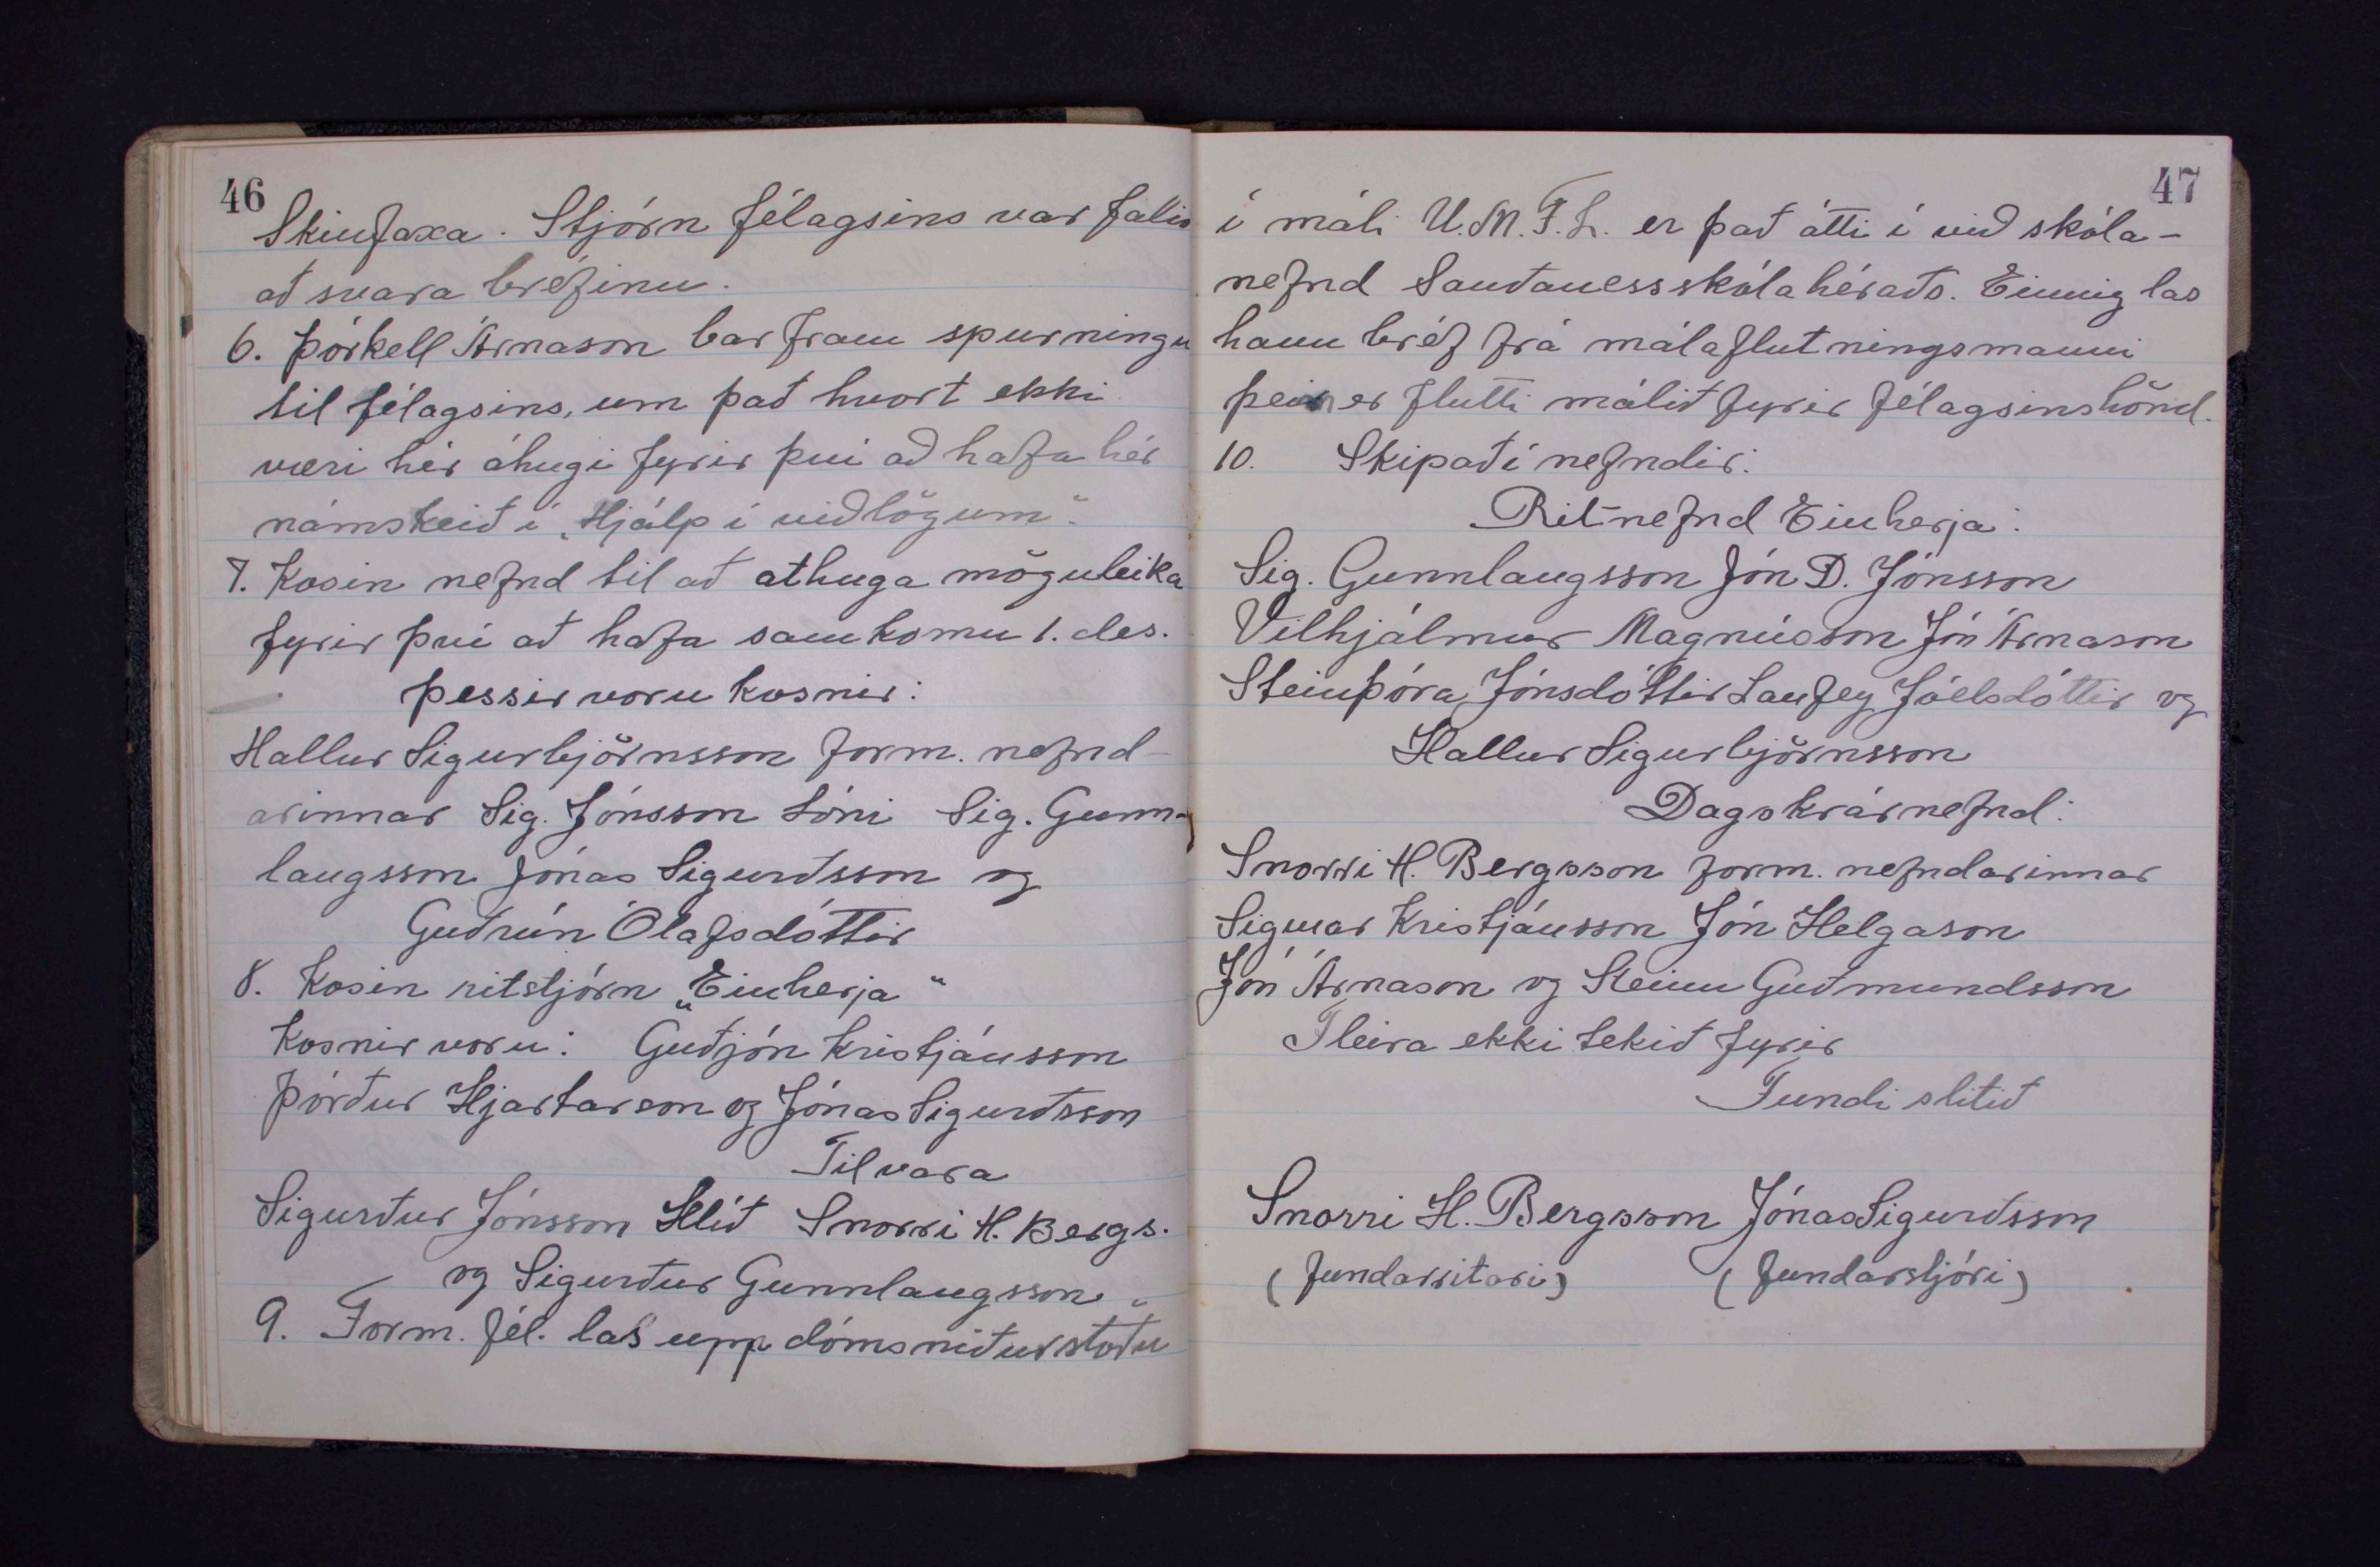 46
Skinfaxa. Stjórn félagsins var falið
að svara bréfinu.
6. Þórkell Árnason bar fram spurningu
til félagsins, um það hvort ekki
væri hér áhugi fyrir því að hafa hér
námskeið í „Hjálp í viðlögum".
7. Kosin nefnd til að athuga möguleika
fyrir því að hafa samkomu 1. des.
Þessir voru kosnir:
Hallur Sigurbjörnsson form. nefnd-
arinnar Sig. Jónsson Lóni Sig. Gunn-
laugsson Jónas Sigurðsson og
Guðrún Ólafsdóttir
8. Kosin ritstjórn „Einherja"
Kosnir voru: Guðjón Kristjánsson
Þórður Hjartarson og Jónas Sigurðsson
Til vara
Sigurður Jónsson Hlíð Snorri H. Bergs.
og Sigurður Gunnlaugsson
9. Form. fél. las upp dómsniðurstöðu
47
í máli U.M.F.L. er það átti í við skóla-
nefnd Sauðanessskólahéraðs. Einnig las
hann bréf frá málaflutningsmanni
þeim er flutti málið fyrir félagsins hönd.
10. Skipað í nefndir:
Ritnefnd Einherja:
Sig. Gunnlaugsson Jón D. Jónsson
Vilhjálmur Magnússon Jón Árnason
Steinþóra Jónsdóttir Laufey Jóelsdóttir og
Hallur Sigurbjörnsson
Dagskrárnefnd:
Snorri H. Bergsson form. nefndarinnar
Sigmar Kristjánsson Jón Helgason
Jón Árnason og Steinn Guðmundsson
Fleira ekki tekið fyrir
Fundi slitið
Snorri H. Bergsson Jónas Sigurðsson
(fundarritari) (fundarstjóri)